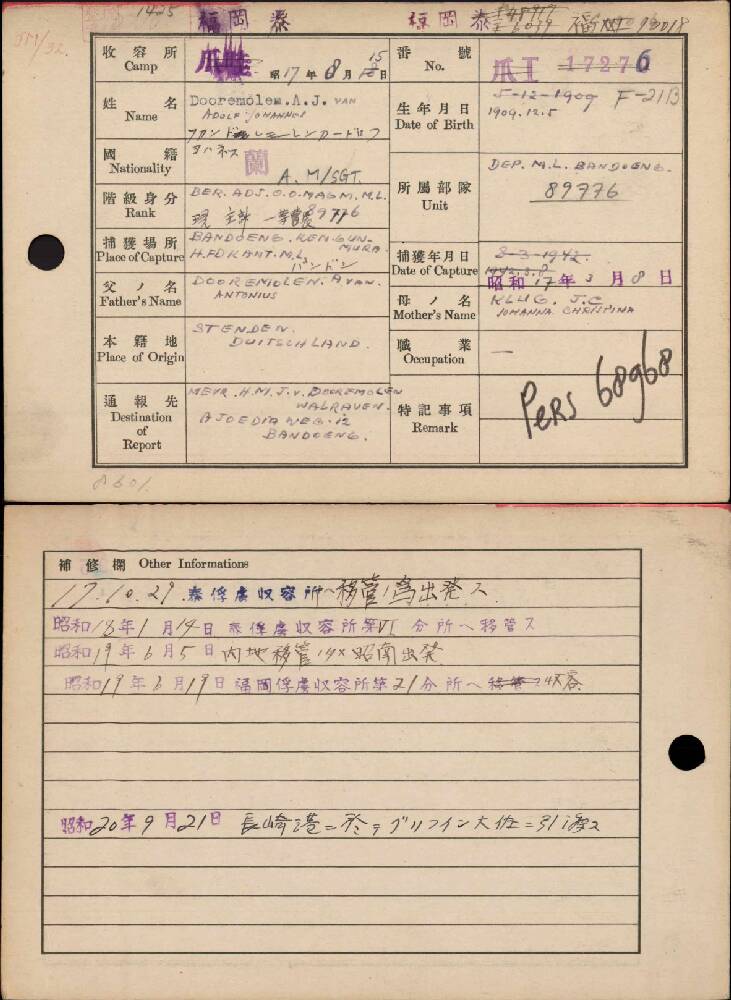 1425 福岡 泰 福岡 泰
收容所 Camp 昭17年8月15日
番號 No. 爪工 17276
姓名 Name Dooremolen. A.J. VAN
ADOLF JOHANNES
生年月日 Date of Birth 5-12-1909 F-21B
1909.12.5
國籍 Nationality 蘭
A. M/SGT.
階級身分 Rank BER. ADJ. O.O. MAGM. M.L.
89776
所屬部隊 Unit DEP. M.L. BANDOENG.
89776
捕獲場所 Place of Capture BANDOENG. KEM. GUN-
MURA.
H.FDKANT. M.L.
バンドン
捕獲年月日 Date of Capture 8-3-1942.
1942.3.8
昭和17年3月8日
父ノ名 Father's Name DOOREMOLEN. A. VAN.
ANTONIUS
母ノ名 Mother's Name KLUG. J.C
JOHANNA CHRISTINA
本籍地 Place of Origin STENDEN.
DUITSCHLAND.
職業 Occupation —
通報先 Destination of Report MEVR. H.M.J. v. DOOREMOLEN
WALRAVEN.
ADJOEDIA WEG. 12
BANDOENG.
特記事項 Remark PERS 68968
補修欄 Other Informations
17.10.29. 泰俘虜収容所へ移管ノ為出発ス
昭和18年1月14日 泰俘虜収容所第VI分所へ移管ス
昭和19年6月5日 内地移管ノタメ昭南出発
昭和19年6月19日 福岡俘虜収容所第21分所へ収容
昭和20年9月21日 長崎港ニ於テグリフイン大佐ニ引渡ス